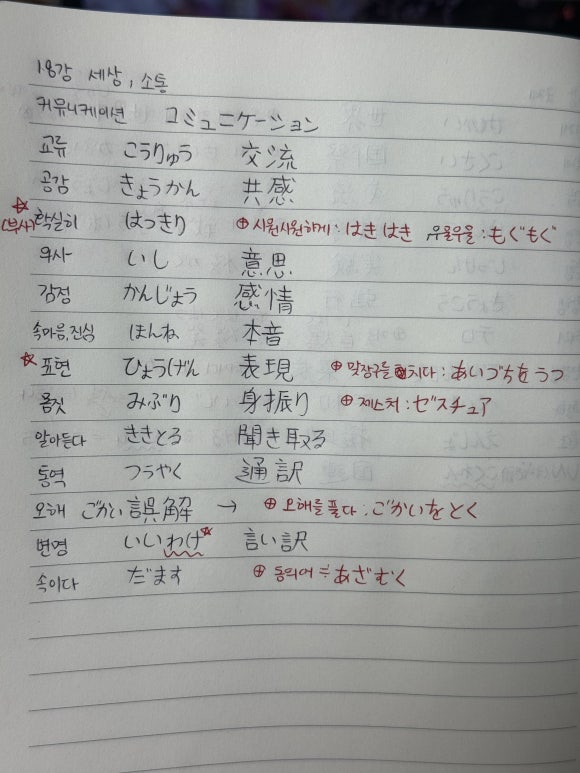 18강 세상, 소통
커뮤니케이션 コミュニケーション
교류 こうりゅう 交流
공감 きょうかん 共感
☆(부사) 확실히 はっきり ⊕ 시원시원하게 : はきはき 우물우물 : もぐもぐ
의사 いし 意思
감정 かんじょう 感情
속마음, 진심 ほんね 本音
☆ 표현 ひょうげん 表現 ⊕ 맞장구를 치다 : あいづちをうつ
몸짓 みぶり 身振り ⊕ 제스처 : ゼスチュア
알아듣다 ききとる 聞き取る
통역 つうやく 通訳
오해 ごかい 誤解 → ⊕ 오해를 풀다 : ごかいをとく
변명 いいわけ☆ 言い訳
속이다 だます ⊕ 동의어 = あざむく